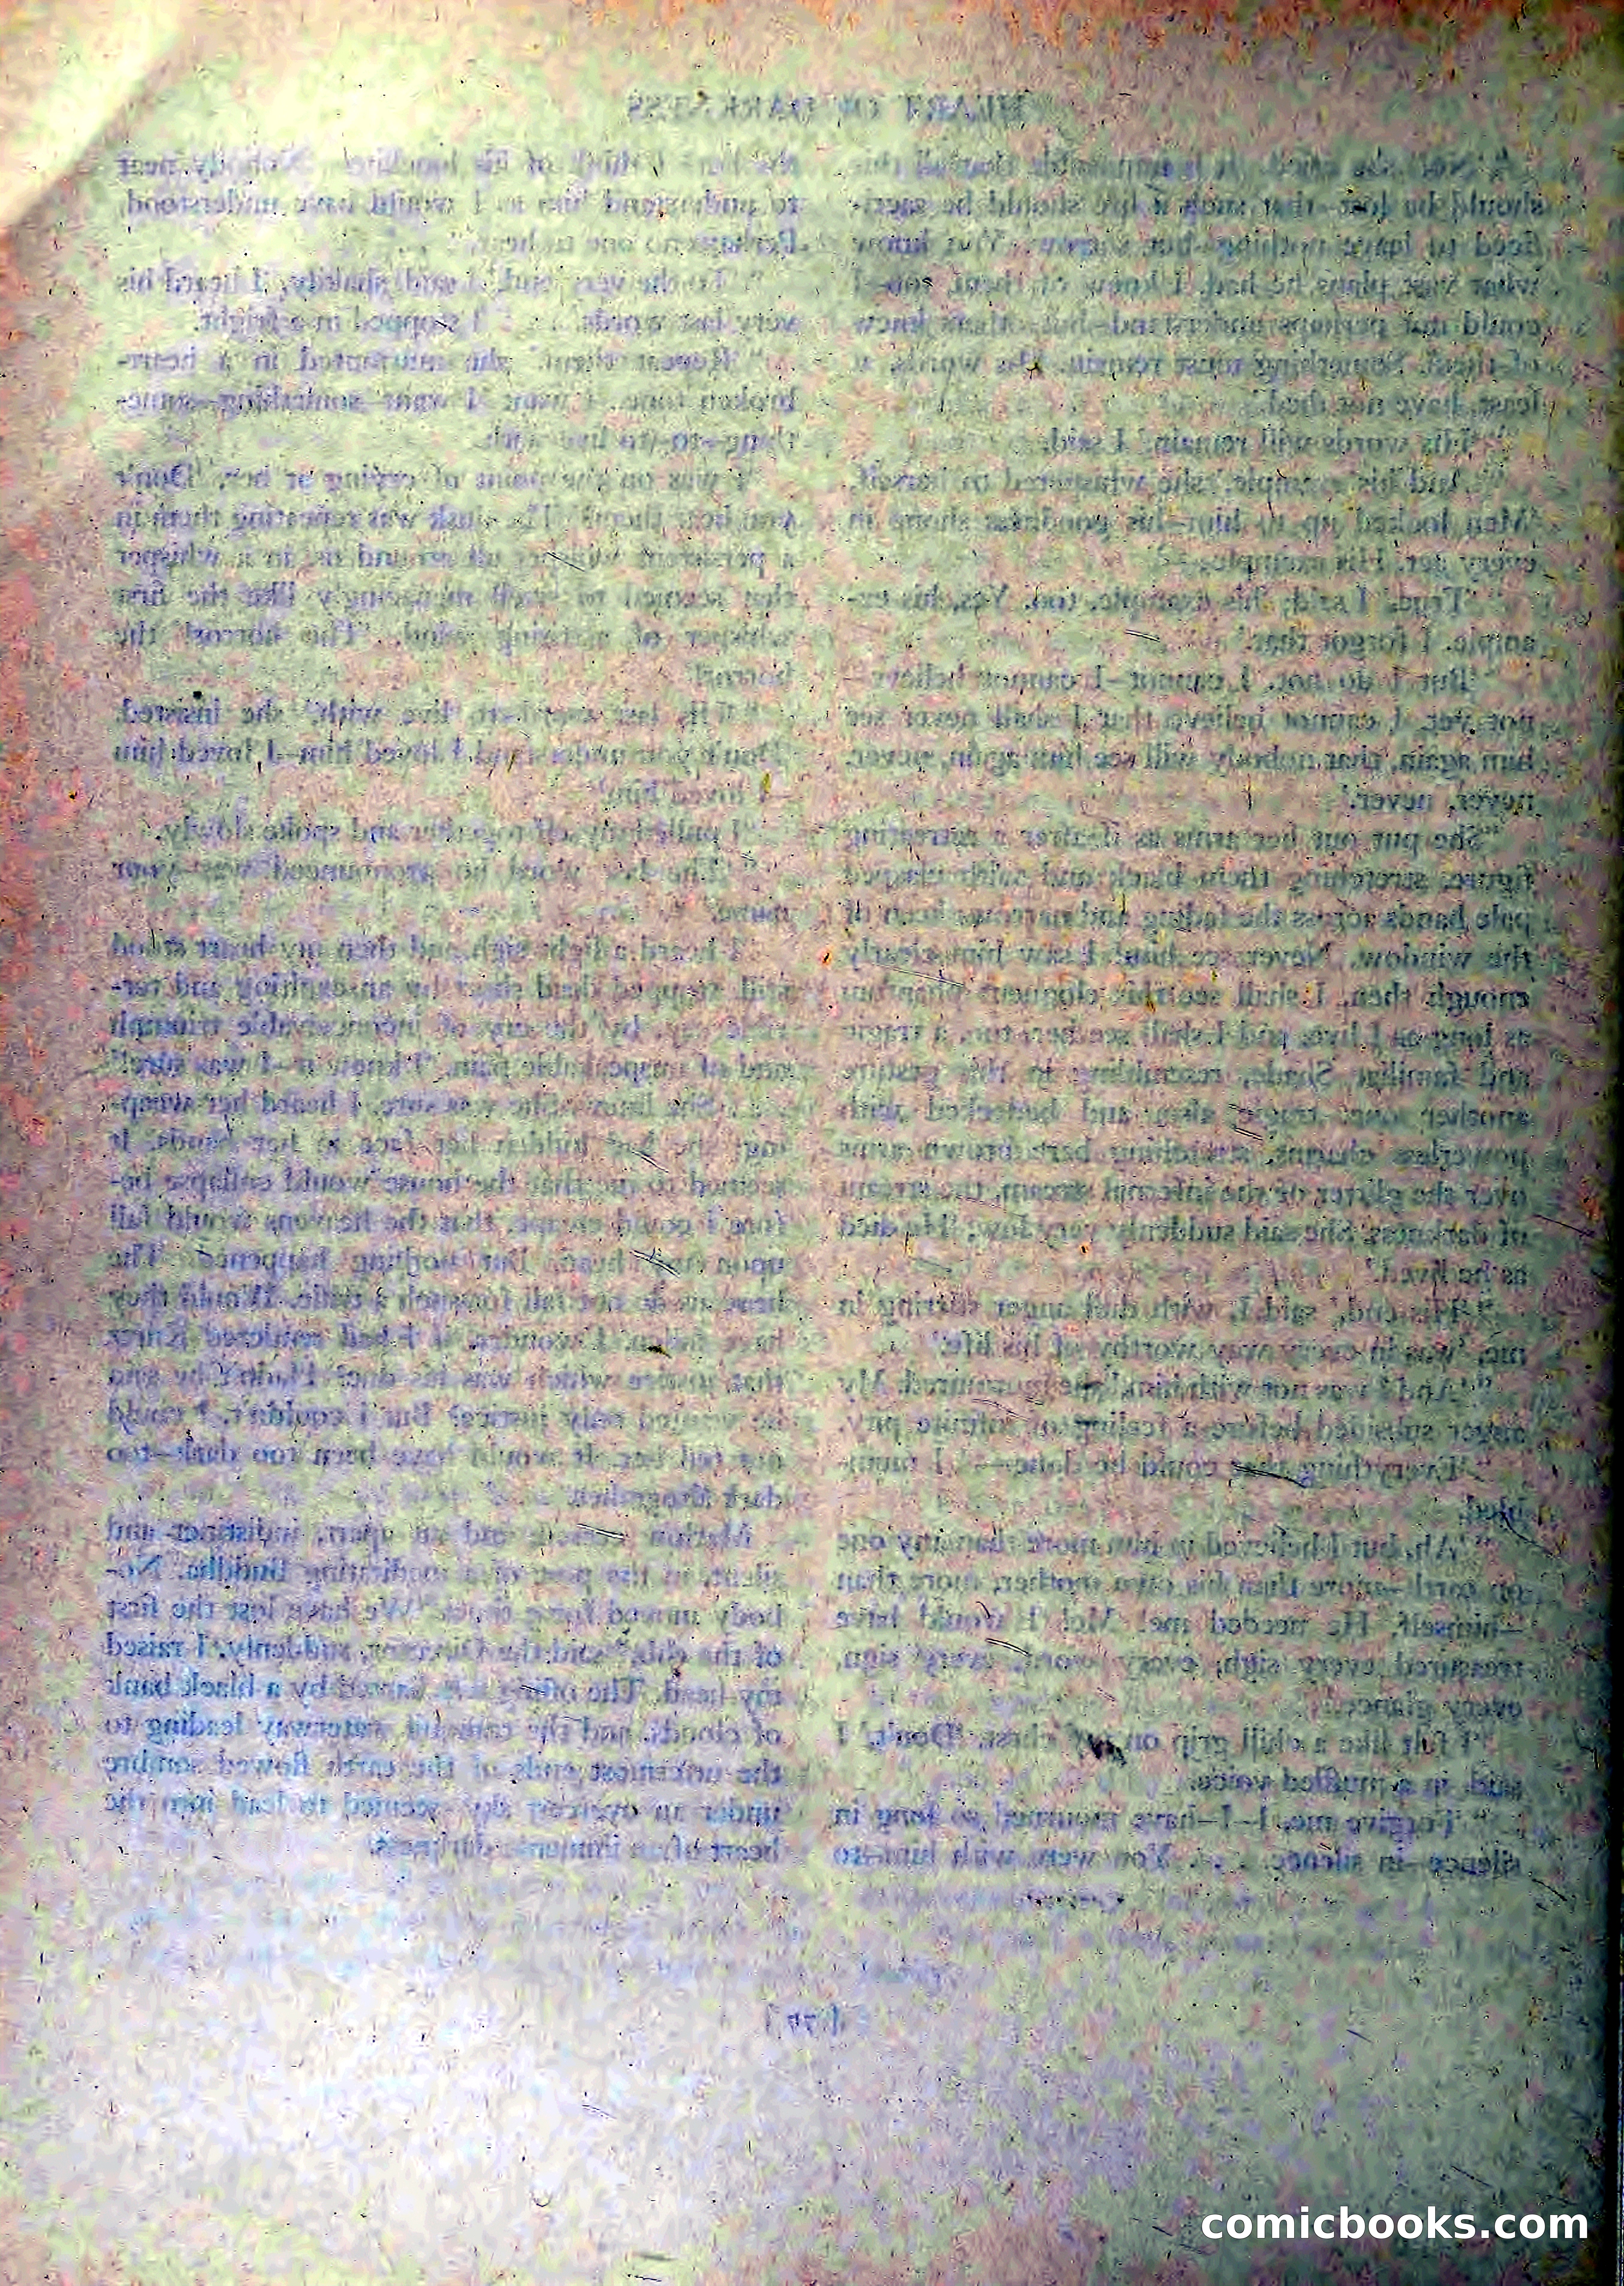 HEART OF DARKNESS
should be lost—that such a life should be sacri-
ficed to leave nothing—but sorrow. You know
what vast plans he had. I knew of them, too—I
could not perhaps understand—but others knew
of them. Something must remain. His words, at
least, have not died.'
"'His words will remain,' I said.
"'And his example,' she whispered to herself.
'Men looked up to him—his goodness shone in
every act. His example—'
"'True,' I said; 'his example, too. Yes, his ex-
ample. I forgot that.'
"'But I do not. I cannot—I cannot believe—
not yet. I cannot believe that I shall never see
him again, that nobody will see him again, never,
never, never.'
"She put out her arms as if after a retreating
figure, stretching them black and with clasped
pale hands across the fading and narrow sheen of
the window. Never see him! I saw him clearly
enough then. I shall see this eloquent phantom
as long as I live, and I shall see her, too, a tragic
and familiar Shade, resembling in this gesture
another one, tragic also, and bedecked with
powerless charms, stretching bare brown arms
over the glitter of the infernal stream, the stream
of darkness. She said suddenly very low, 'He died
as he lived.'
"'His end,' said I, with dull anger stirring in
me, 'was in every way worthy of his life.'
"'And I was not with him,' she murmured. My
anger subsided before a feeling of infinite pity.
"'Everything that could be done—' I mum-
bled.
"'Ah, but I believed in him more than any one
on earth—more than his own mother, more than
—himself. He needed me! Me! I would have
treasured every sigh, every word, every sign,
every glance.'
"I felt like a chill grip on my chest. 'Don't,' I
said, in a muffled voice.
"'Forgive me. I—I—have mourned so long in
silence—in silence. . . . You were with him—to
the last? I think of his loneliness. Nobody near
to understand him as I would have understood.
Perhaps no one to hear.'
"'To the very end,' I said, shakily. 'I heard his
very last words. . . .' I stopped in a fright.
"'Repeat them,' she murmured in a heart-
broken tone. 'I want—I want—something—some-
thing—to—to live with.'
"I was on the point of crying at her, 'Don't
you hear them?' The dusk was repeating them in
a persistent whisper all around us, in a whisper
that seemed to swell menacingly like the first
whisper of a rising wind. 'The horror! the
horror!'
"'His last word—to live with,' she insisted.
'Don't you understand I loved him—I loved him
—I loved him!'
"I pulled myself together and spoke slowly.
"'The last word he pronounced was—your
name.'
"I heard a light sigh and then my heart stood
still, stopped dead short by an exulting and ter-
rible cry, by the cry of inconceivable triumph
and of unspeakable pain. 'I knew it—I was sure!'
. . . She knew. She was sure. I heard her weep-
ing; she had hidden her face in her hands. It
seemed to me that the house would collapse be-
fore I could escape, that the heavens would fall
upon my head. But nothing happened. The
heavens do not fall for such a trifle. Would they
have fallen, I wonder, if I had rendered Kurtz
that justice which was his due? Hadn't he said
he wanted only justice? But I couldn't. I could
not tell her. It would have been too dark—too
dark altogether. . . ."
Marlow ceased, and sat apart, indistinct and
silent, in the pose of a meditating Buddha. No-
body moved for a time. "We have lost the first
of the ebb," said the Director, suddenly. I raised
my head. The offing was barred by a black bank
of clouds, and the tranquil waterway leading to
the uttermost ends of the earth flowed sombre
under an overcast sky—seemed to lead into the
heart of an immense darkness.
comicbooks.com